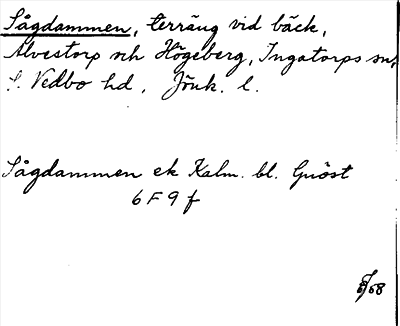 Sågdammen, terräng vid bäck,
Alvestorp och Högeberg, Ingatorps sn,
S. Vedbo hd, Jönk. l.
Sågdammen ek Kalm. bl. Gnöst
6 F 9 f
68